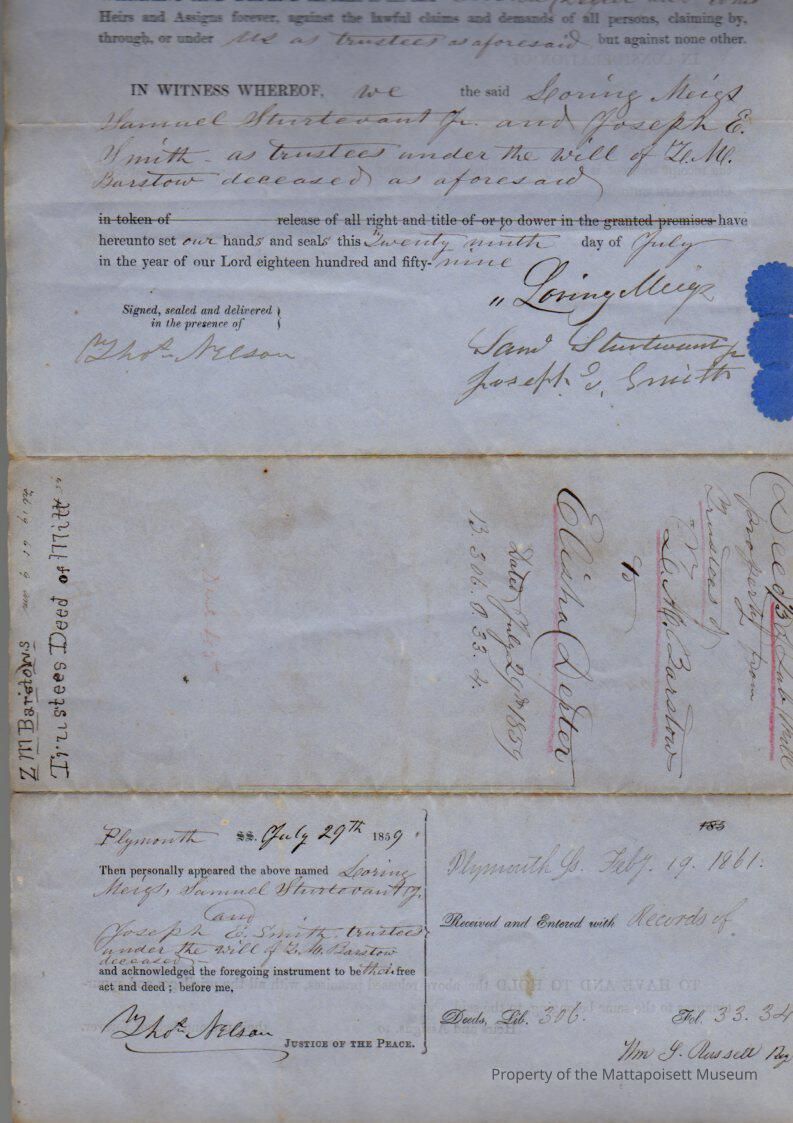 Heirs and Assigns forever, against the lawful claims and demands of all persons, claiming by,
through, or under us as trustees as aforesaid but against none other.
IN WITNESS WHEREOF, we the said Loring Meigs
Samuel Sturtevant Jr. and Joseph E.
Smith - as trustees under the will of Z. M.
Barstow deceased as aforesaid
in token of release of all right and title of or to dower in the granted premises have
hereunto set our hands and seals this Twenty ninth day of July
in the year of our Lord eighteen hundred and fifty-nine
Signed, sealed and delivered
in the presence of
Thos. Nelson
" Loring Meigs
Saml Sturtevant Jr
Joseph E. Smith
Deed
property from
Trustees of
Z. M. Barstow
to
Elisha Dexter
Dated July 29th 1859
B. 306. P. 33. 4.
Z M Barstows
Trustees Deed of Mill
Plymouth SS. July 29th 1859
Then personally appeared the above named Loring
Meigs, Samuel Sturtevant Jr.
and
Joseph E. Smith trustees
under the will of Z. M. Barstow
deceased -
and acknowledged the foregoing instrument to be their free
act and deed; before me,
Thos. Nelson
JUSTICE OF THE PEACE.
185
Plymouth Ss. Feby. 19. 1861.
Received and Entered with Records of
Deeds, Lib. 306. Fol. 33. 34
Wm S. Russell Reg
Property of the Mattapoisett Museum